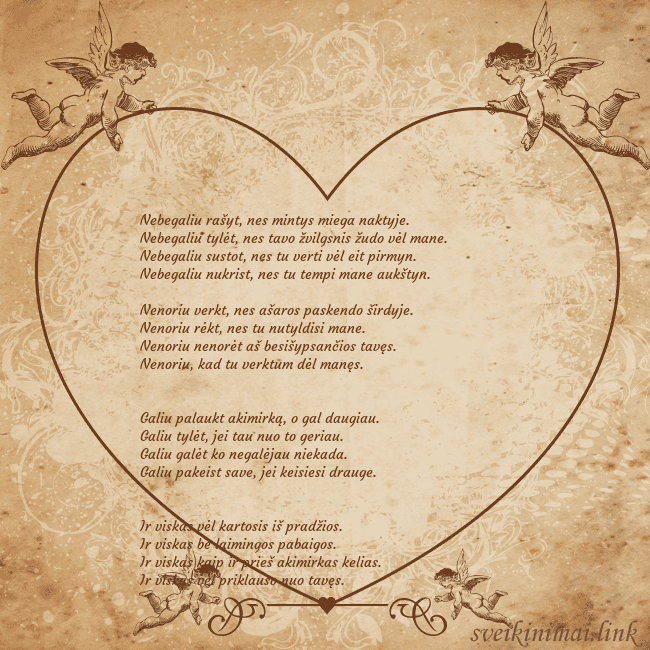 Nebegaliu rašyt, nes mintys miega naktyje.
Nebegaliu tylėt, nes tavo žvilgsnis žudo vėl mane.
Nebegaliu sustot, nes tu verti vėl eit pirmyn.
Nebegaliu nukrist, nes tu tempi mane aukštyn.
Nenoriu verkt, nes ašaros paskendo širdyje.
Nenoriu rėkt, nes tu nutyldisi mane.
Nenoriu nenorėt aš besišypsančios tavęs.
Nenoriu, kad tu verktum dėl manęs.
Galiu palaukt akimirką, o gal daugiau.
Galiu tylėt, jei tau nuo to geriau.
Galiu galėt ko negalėjau niekada.
Galiu pakeist save, jei keisiesi drauge.
Ir viskas vėl kartosis iš pradžios.
Ir viskas be laimingos pabaigos.
Ir viskas kaip ir prieš akimirkas kelias.
Ir viskas vėl priklauso nuo tavęs.
sveikinimai.link